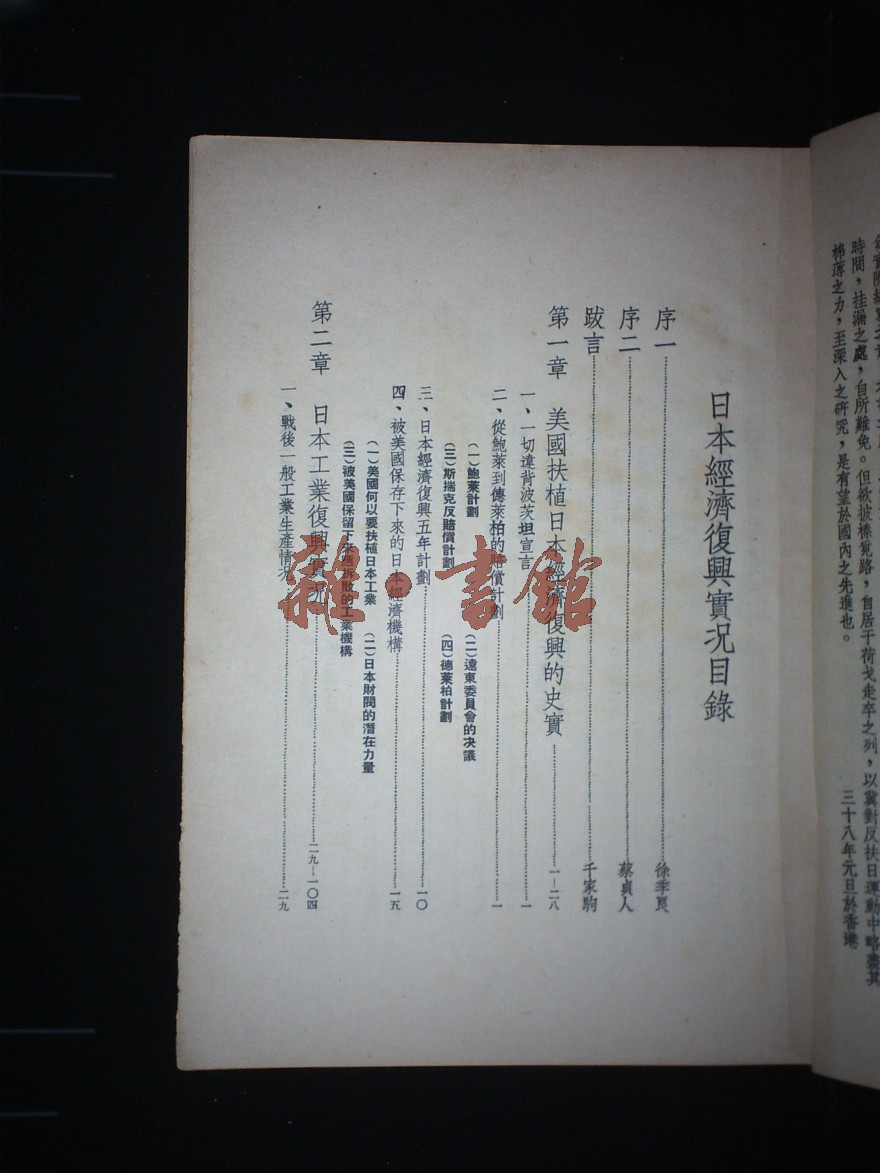 時間，挂漏之處，自所難免。但欲披榛覓路，自居于荷戈走卒之列，以冀對反扶日運動中略盡其
棉薄之力，至深入之研究，是有望於國內之先進也。
三十八年元旦於香港
日本經濟復興實况目錄
序一……徐季良
序二……蔡貞人
跋言……千家駒
第一章　美國扶植日本經濟復興的史實……一—二八
一、一切違背波茨坦宣言……一
二、從鮑萊到德萊柏的賠償計劃……一
（一）鮑萊計劃　（二）遠東委員會的决議
（三）斯揣克反賠償計劃　（四）德萊柏計劃
三、日本經濟復興五年計劃……一〇
四、被美國保存下來的日本經濟機構……一五
（一）美國何以要扶植日本工業　（二）日本財閥的潛在力量
（三）被美國保留下來應拆散的工業機構
第二章　日本工業復興實况……二九—一〇四
一、戰後一般工業生產情况……二九
雜·書館